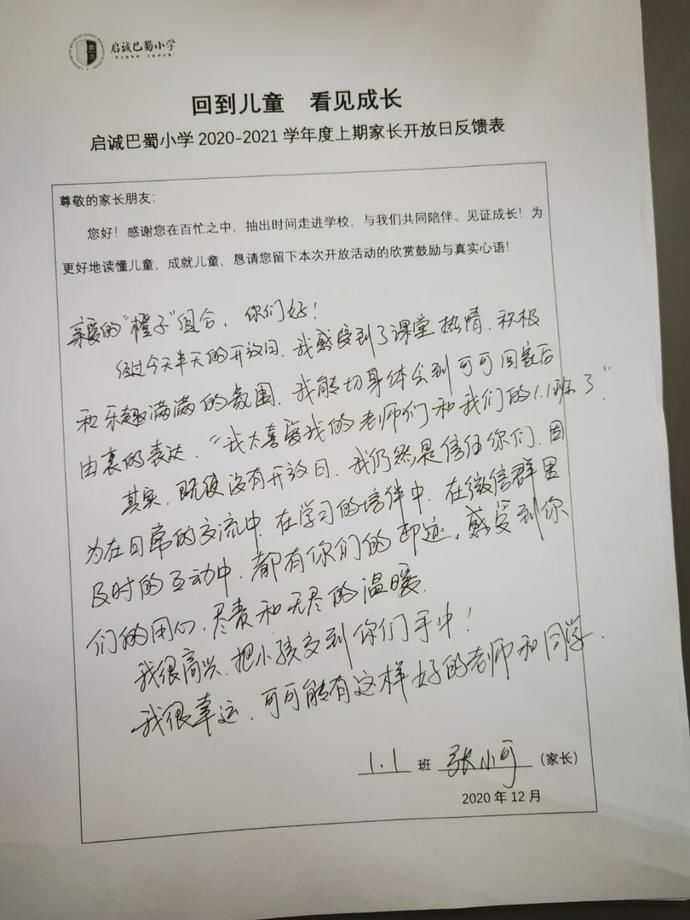 启诚巴蜀小学
回到儿童 看见成长
启诚巴蜀小学2020-2021学年度上期家长开放日反馈表
尊敬的家长朋友：
您好！感谢您在百忙之中，抽出时间走进学校，与我们共同陪伴、见证成长！为
更好地读懂儿童，成就儿童，恳请您留下本次开放活动的欣赏鼓励与真实心语！
亲爱的“橙子”组合，你们好！
经过今天半天的开放日，我感受到了课堂热情、积极
和乐趣满满的氛围，我能切身体会到可可回家后
由衷的表达，“我太喜爱我的老师们和我们的1.1班了”
其实，既使没有开放日，我仍然是信任你们，因
为在日常的交流中，在学习的陪伴中，在微信群里
及时的互动中，都有你们的印迹，感受到你
们的用心，尽责和无尽的温暖．
我很高兴，把小孩交到你们手中！
我很幸运，可可能有这样好的老师和同学．
1.1 班 张小可（家长）
2020年12月